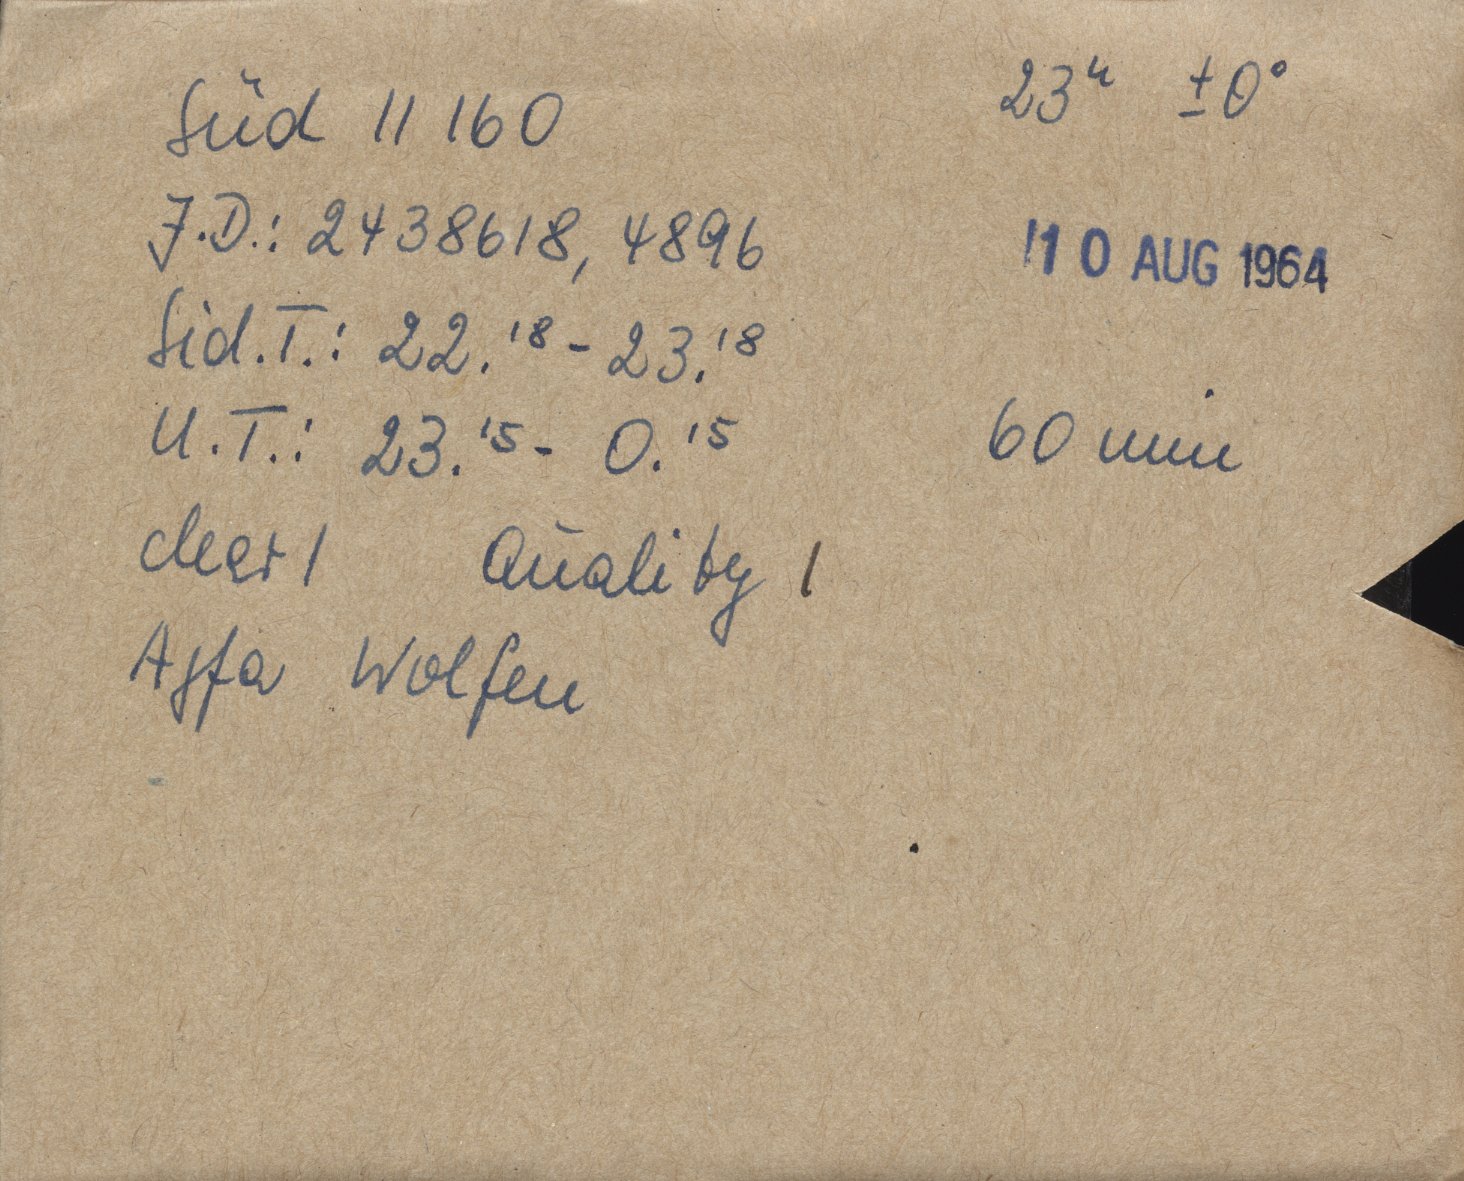 Süd 11 160 23ʰ ±0°
J.D.: 2438618, 4896 10 AUG 1964
Sid.T.: 22.¹⁸ - 23.¹⁸
U.T.: 23.¹⁵ - 0.¹⁵ 60 min
clear 1 Quality 1
Agfa Wolfen